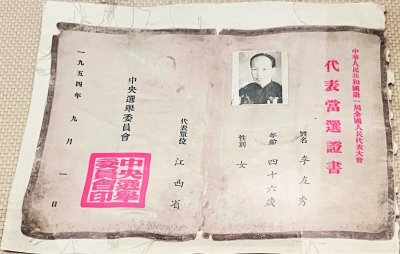 中華人民共和國第一屆全國人民代表大會
代表當選證書
姓名 李友秀
年齡 四十六歲
性別 女
代表單位 江西省
中央選舉委員會
一九五四年九月一日
中央選舉
委員會印